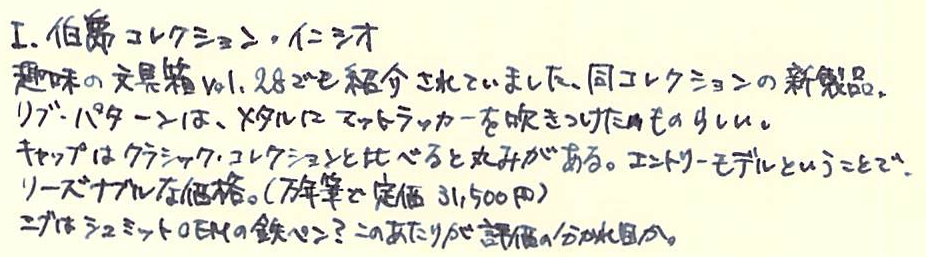 I. 伯爵コレクション・イニシオ
趣味の文具箱 vol.28でも紹介されていました、同コレクションの新製品。
リブ・パターンは、メタルにマットラッカーを吹きつけたものらしい。
キャップはクラシック・コレクションと比べると丸みがある。エントリーモデルということで、
リーズナブルな価格。(万年筆で定価 31,500円)
ニブはシュミットOEMの鉄ペン?このあたりが評価の分かれ目か。